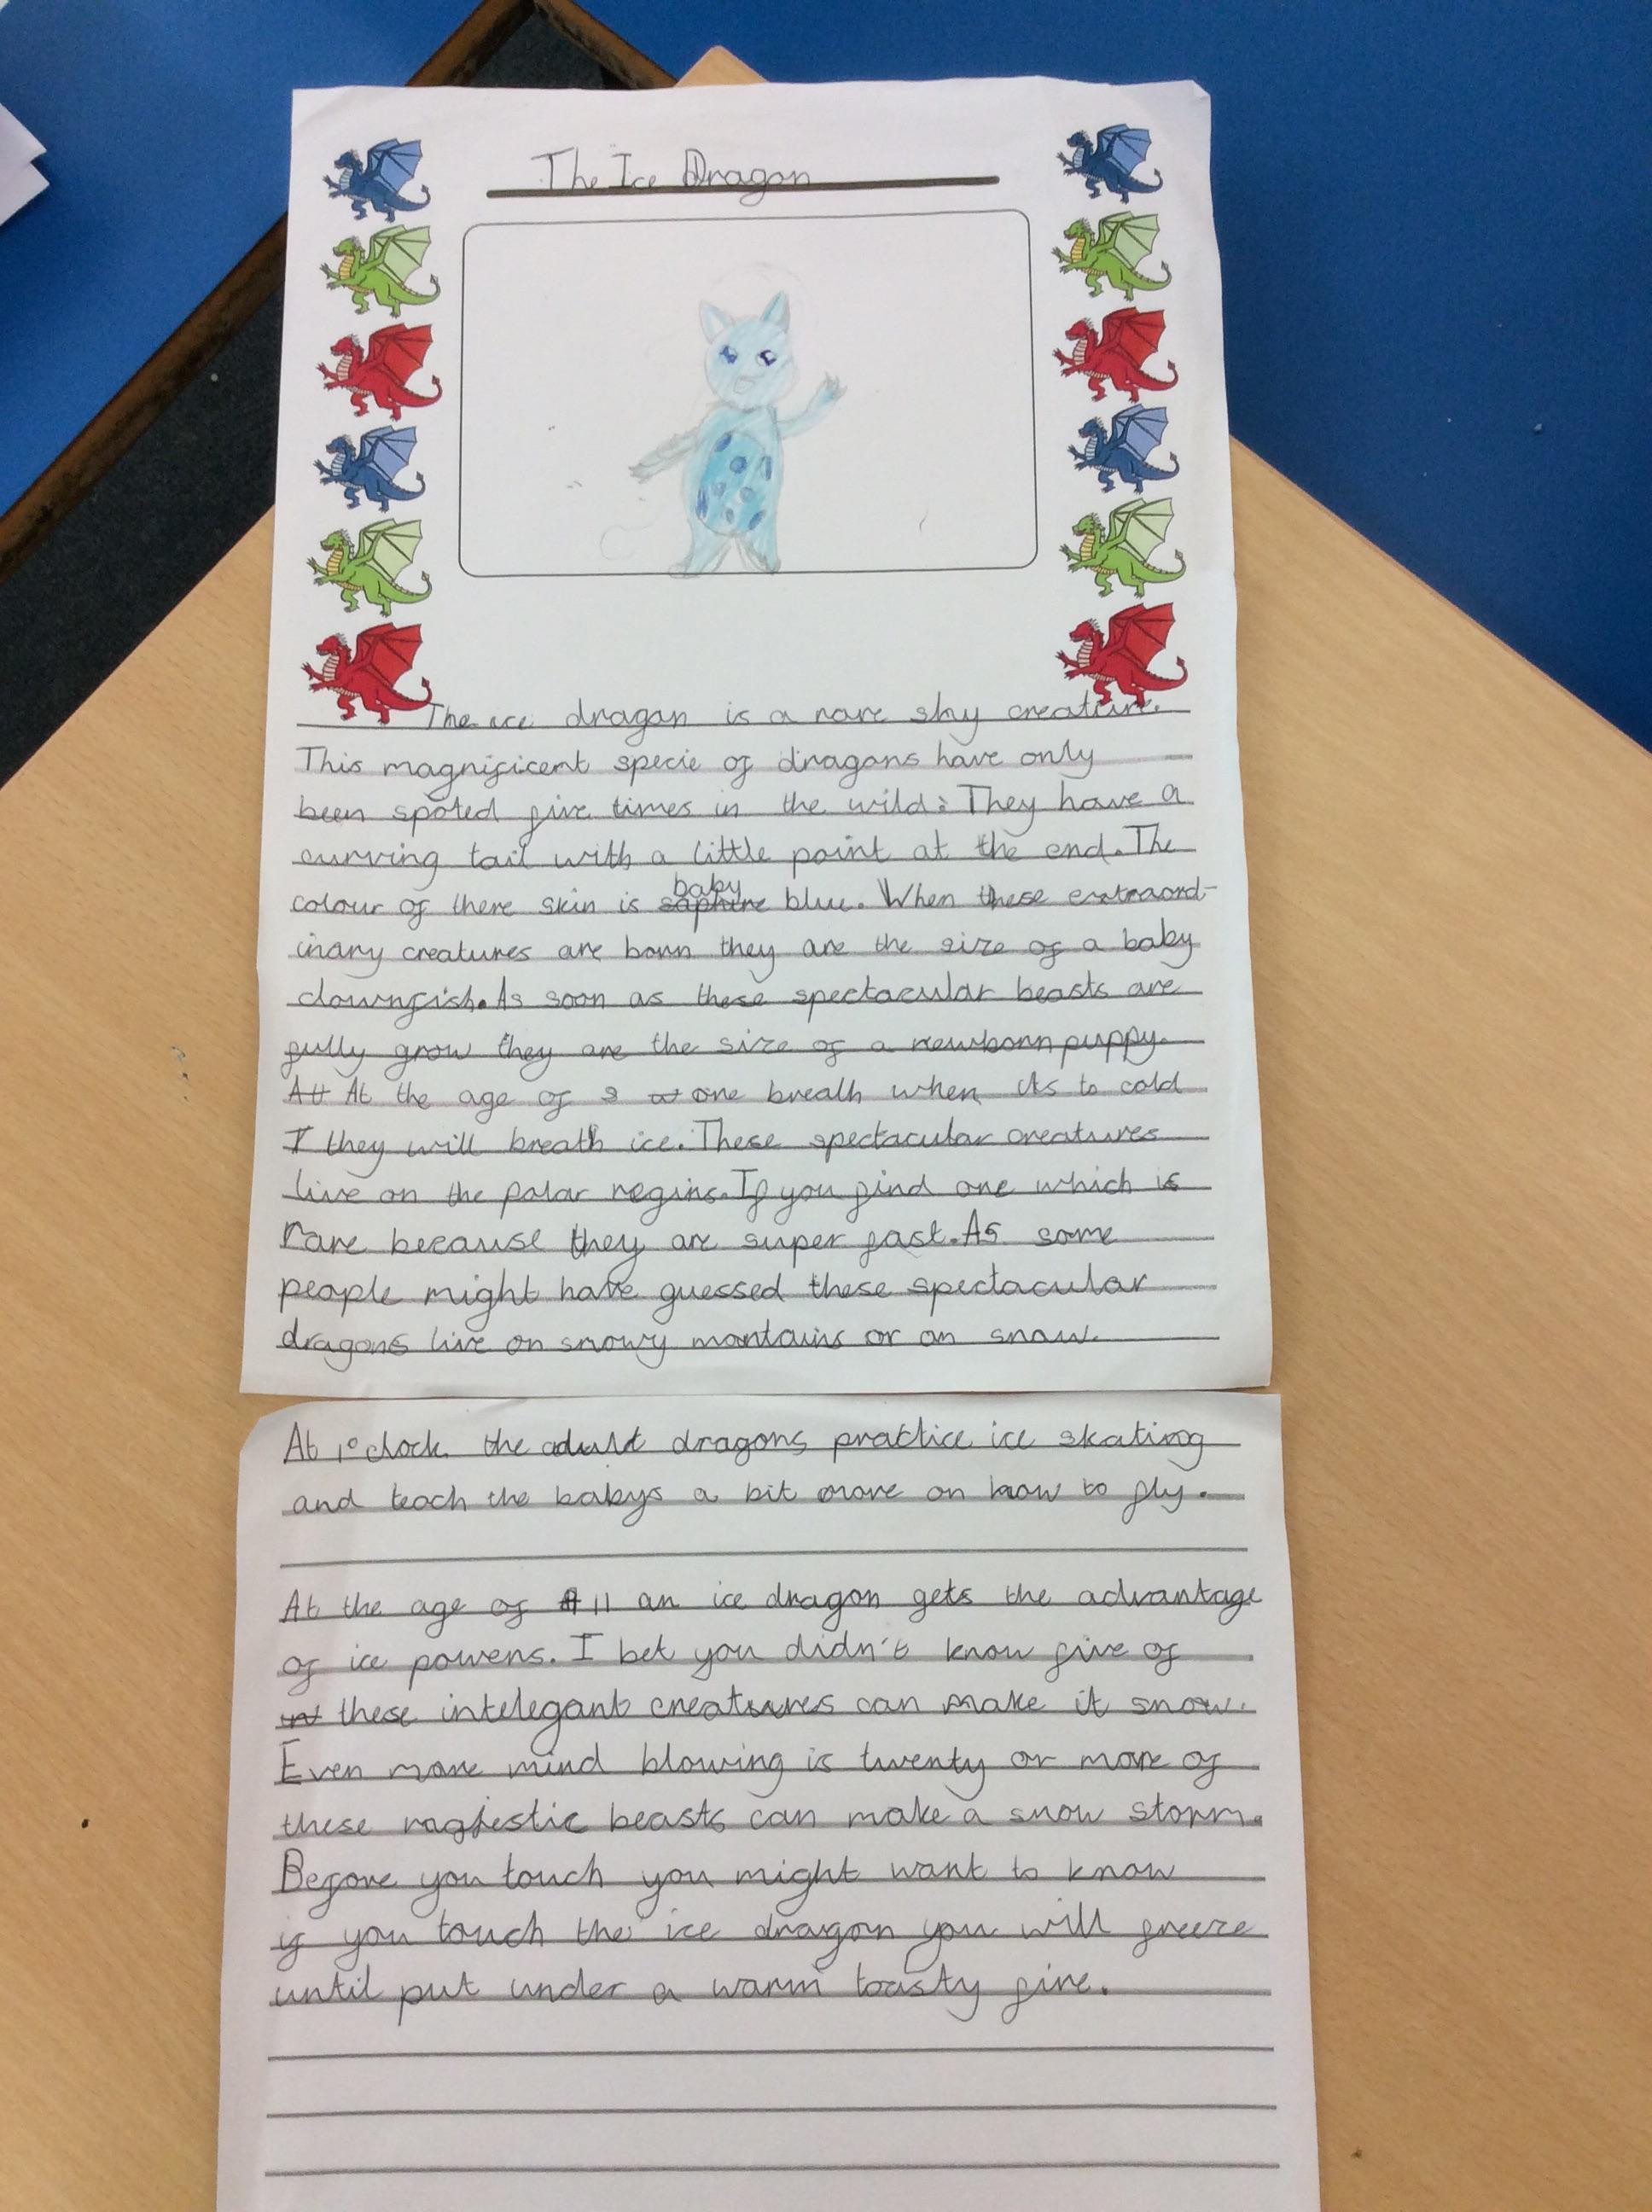 The Ice Dragon
The ice dragon is a rare shy creature.
This magnificent specie of dragons have only
been spoted five times in the wild. They have a
curving tail with a little point at the end. The
colour of there skin is baby blue. When these extraord-
inary creatures are born they are the size of a baby
clownfish. As soon as these spectacular beasts are
fully grow they are the size of a newborn puppy.
At the age of one breath when its to cold
they will breath ice. These spectacular creatures
live on the polar regins. If you find one which is
rare because they are super fast. As some
people might have guessed these spectacular
dragons live on snowy montains or on snow.
At 1o'clock the adult dragons practice ice skating
and teach the babys a bit more on how to fly.
At the age of 11 an ice dragon gets the advantage
of ice powers. I bet you didn't know five of
these intelegant creatures can make it snow.
Even more mind blowing is twenty or more of
these magjestic beasts can make a snow storm.
Before you touch you might want to know
if you touch the ice dragon you will freeze
until put under a warm toasty fire.